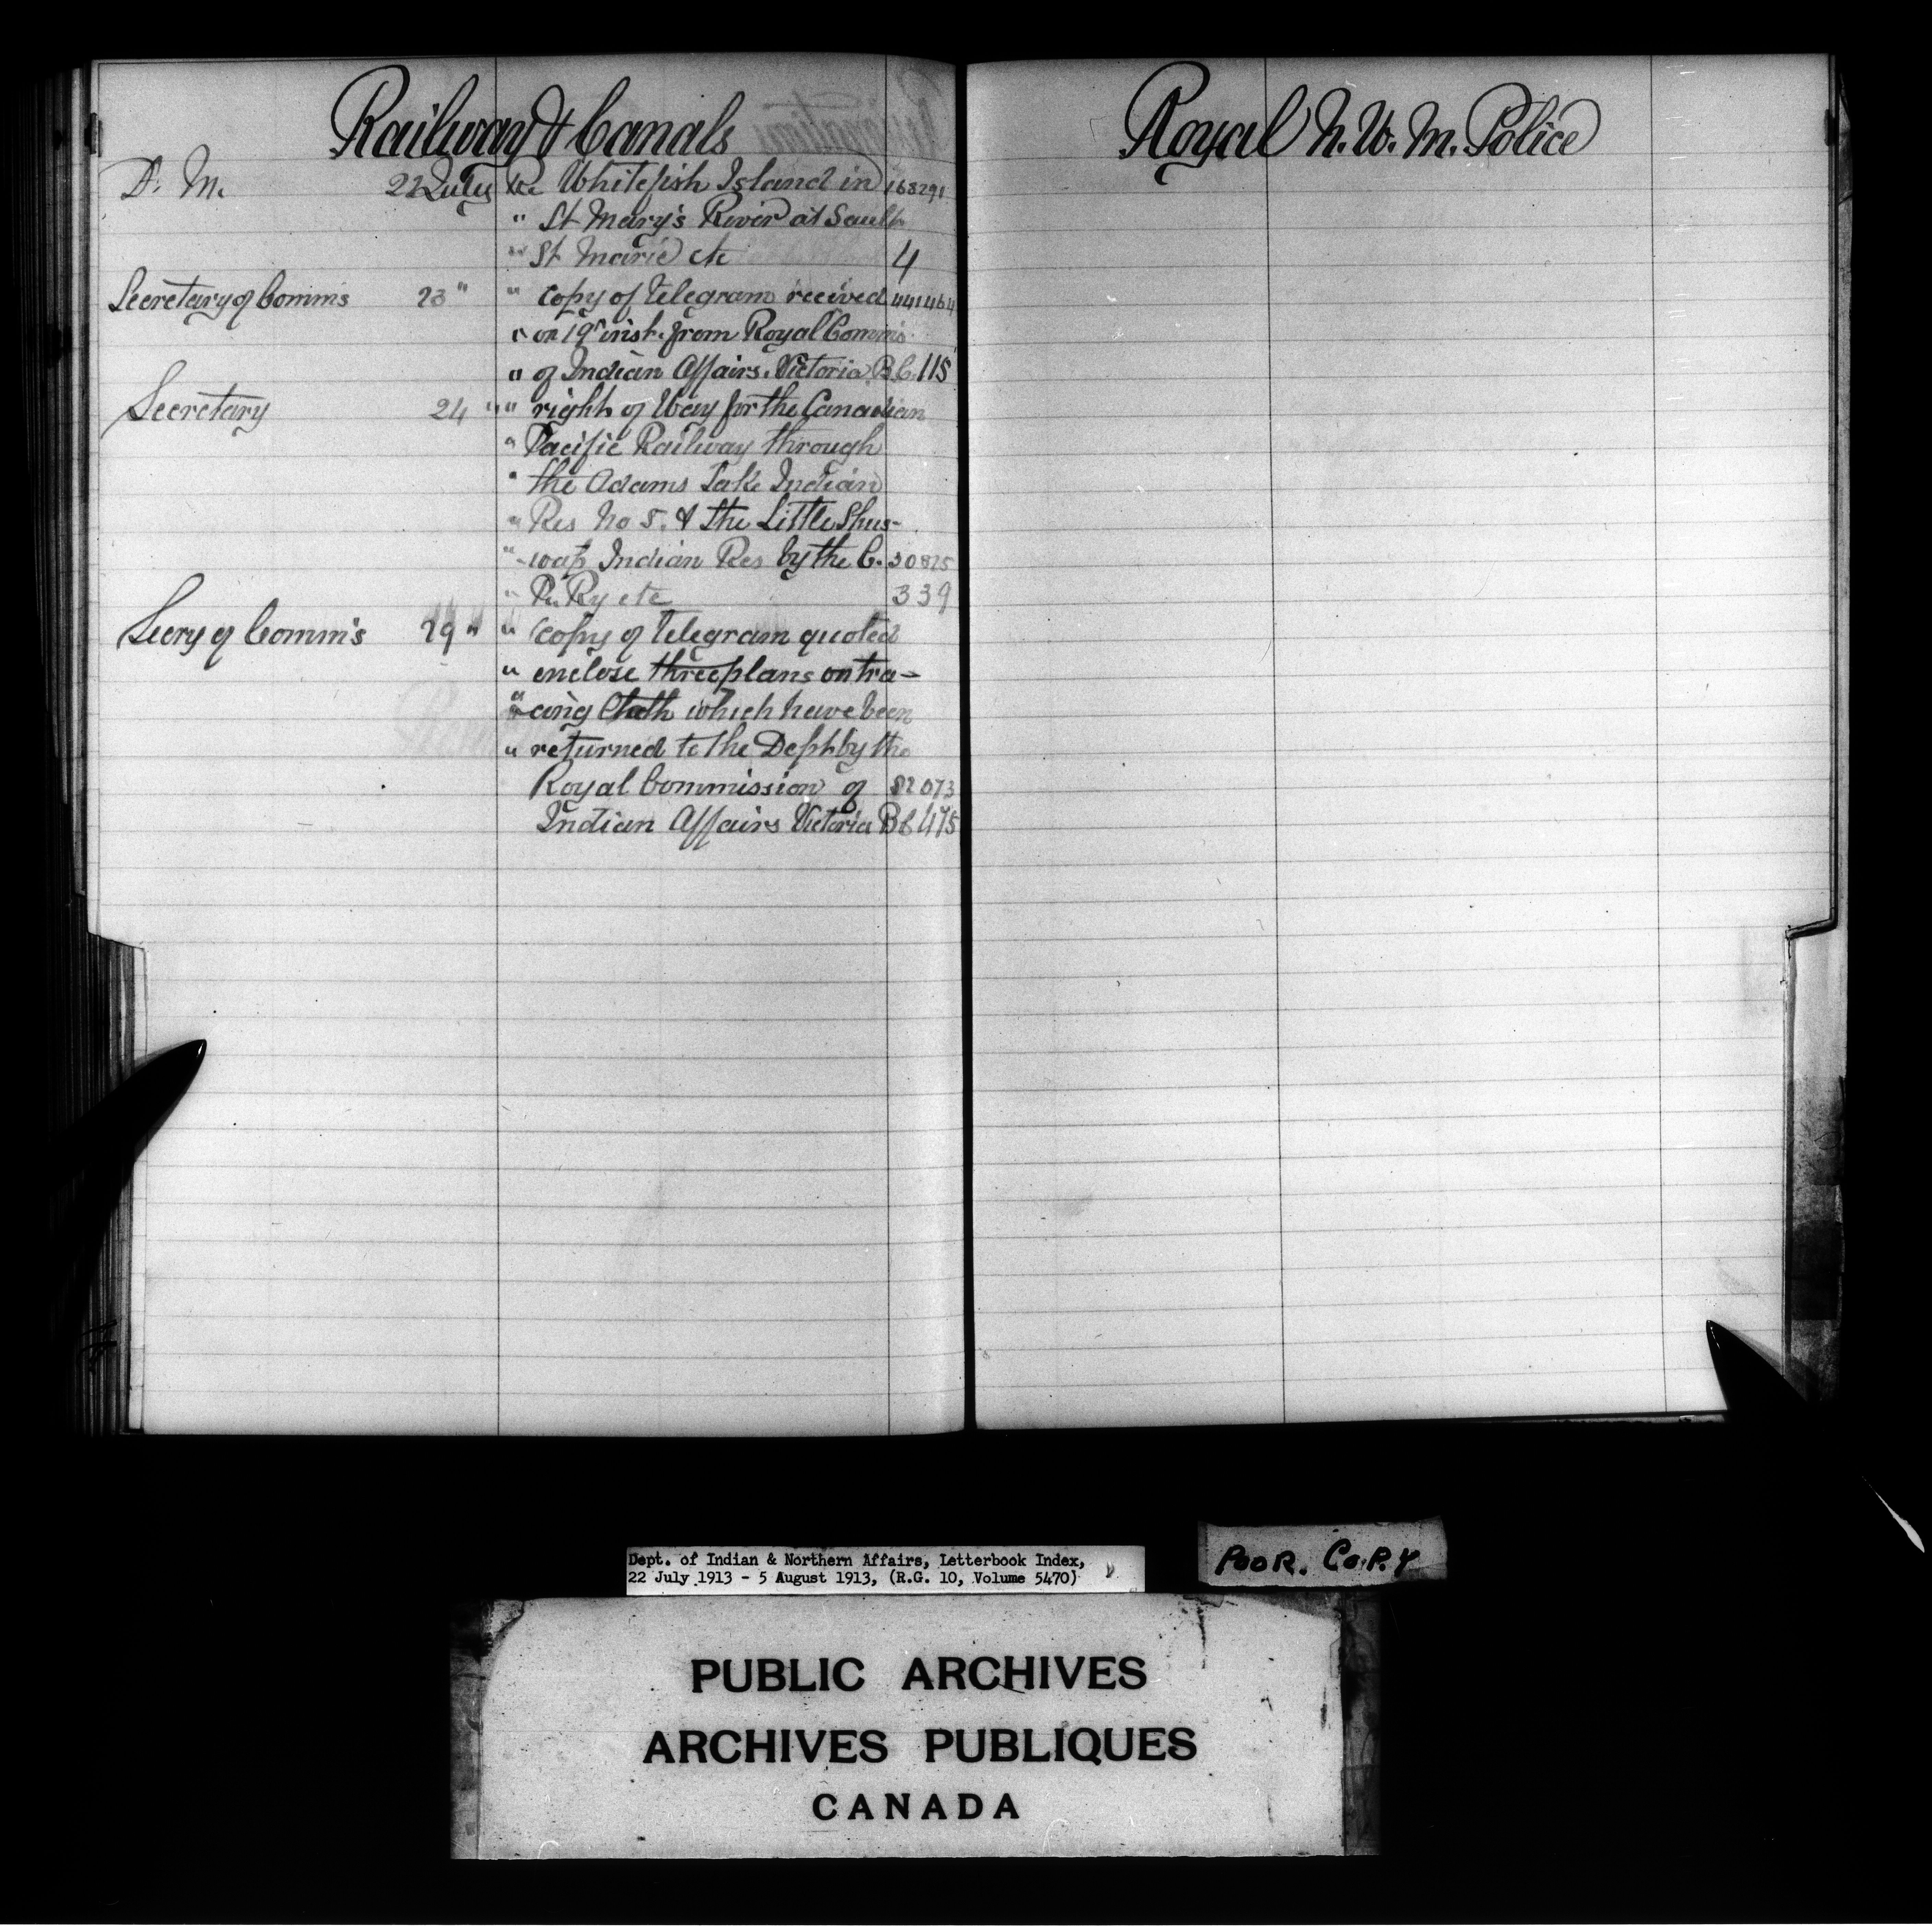 Railway & Canals
D. M. 22 July Re Whitefish Island in 168291
" St Mary's River at Sault
" St Marie etc 4
Secretary of Comm's 23 " " copy of telegram recived 441464
" on 19th inst. from Royal Comm's
" of Indian Affairs. Victoria B.C. 115
Secretary 24 " " right of Way for the Canadian
" Pacific Railway through
" the Adams Lake Indian
" Res No 5. & the Little Shus-
" -wap Indian Res by the C. 30825
" P. Ry etc 339
Secry of Comm's 29 " " copy of telegram quoted
" enclose three plans on tra-
" cing Cloth which have been
" returned to the Dept by the
Royal Commission of 82073
Indian Affairs Victoria BC 475
Royal N. W. M. Police
Dept. of Indian & Northern Affairs, Letterbook Index,
22 July 1913 - 5 August 1913, (R.G. 10, Volume 5470)
POOR. COPY
PUBLIC ARCHIVES
ARCHIVES PUBLIQUES
CANADA